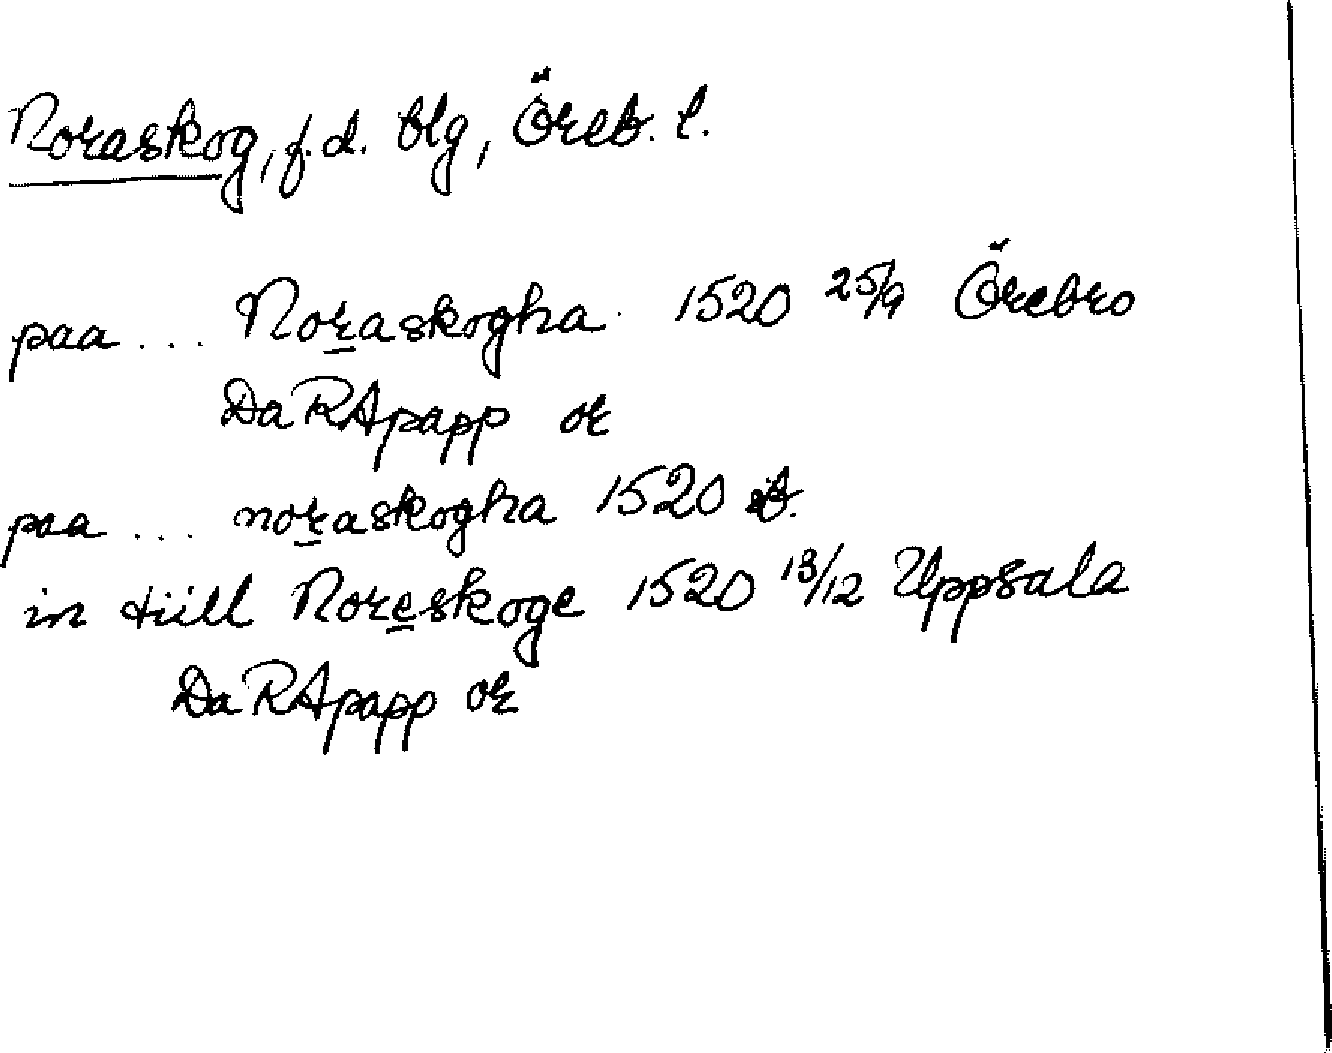 Noraskog, f.d. blg, Öreb. l.
paa ... Noraskogha 1520 25/9 Örebro
Da RApapp or
paa ... noraskogha 1520 ib.
in tiill Noreskoge 1520 13/12 Uppsala
Da RApapp or